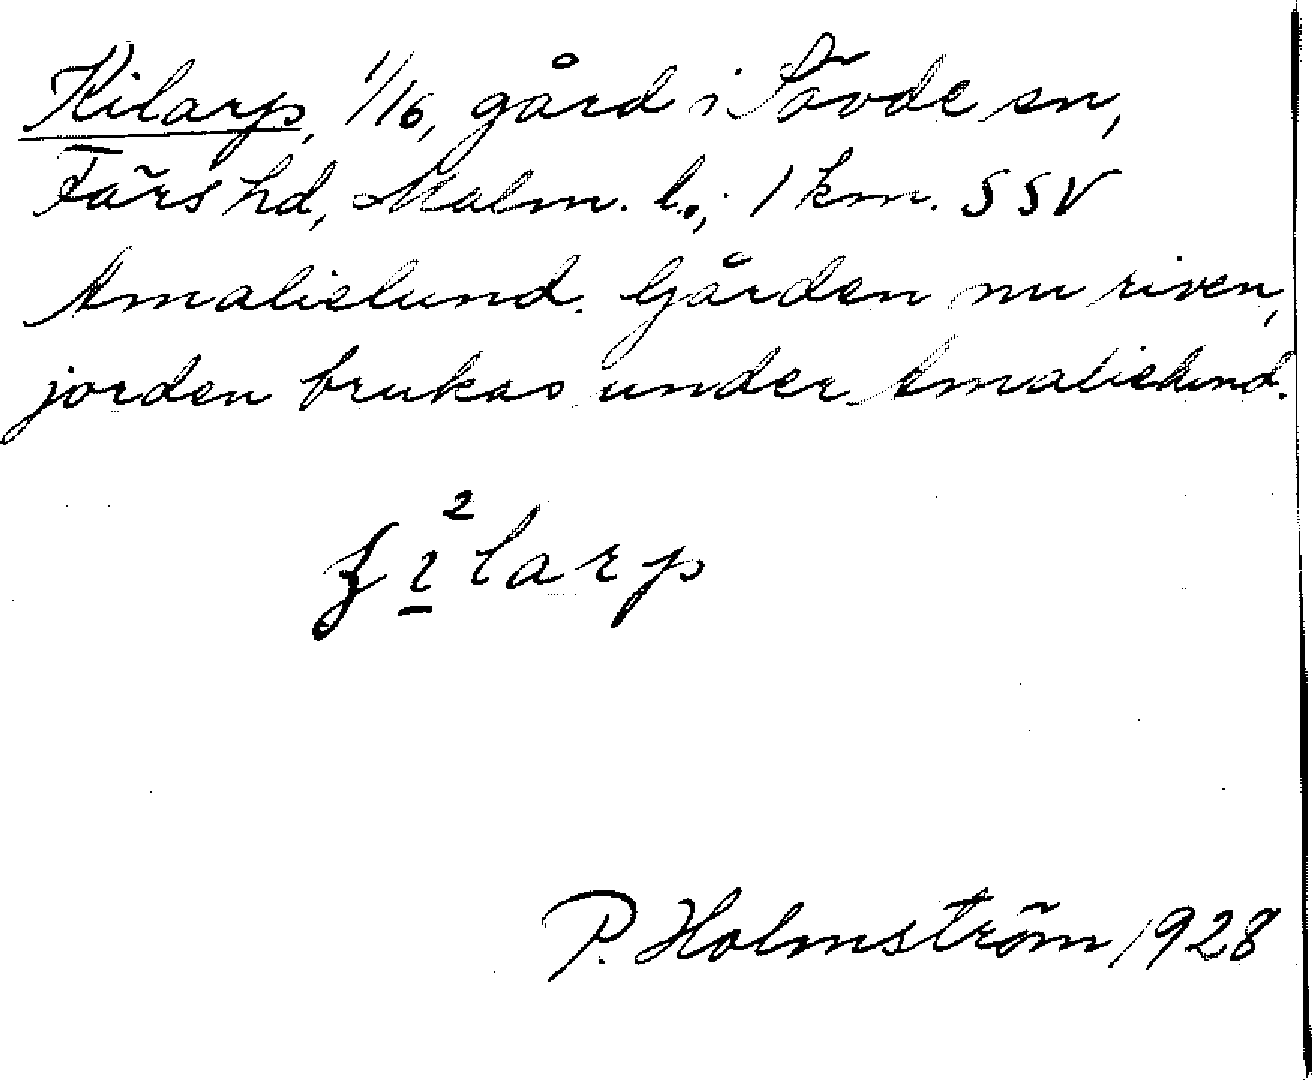 Kilarp, 1/16, gård i Sövde sn,
Färs hd, Malm. l., 1 km. SSV
Amalielund. Gården nu riven,
jorden brukas under Amalielund.
P. Holmström 1928